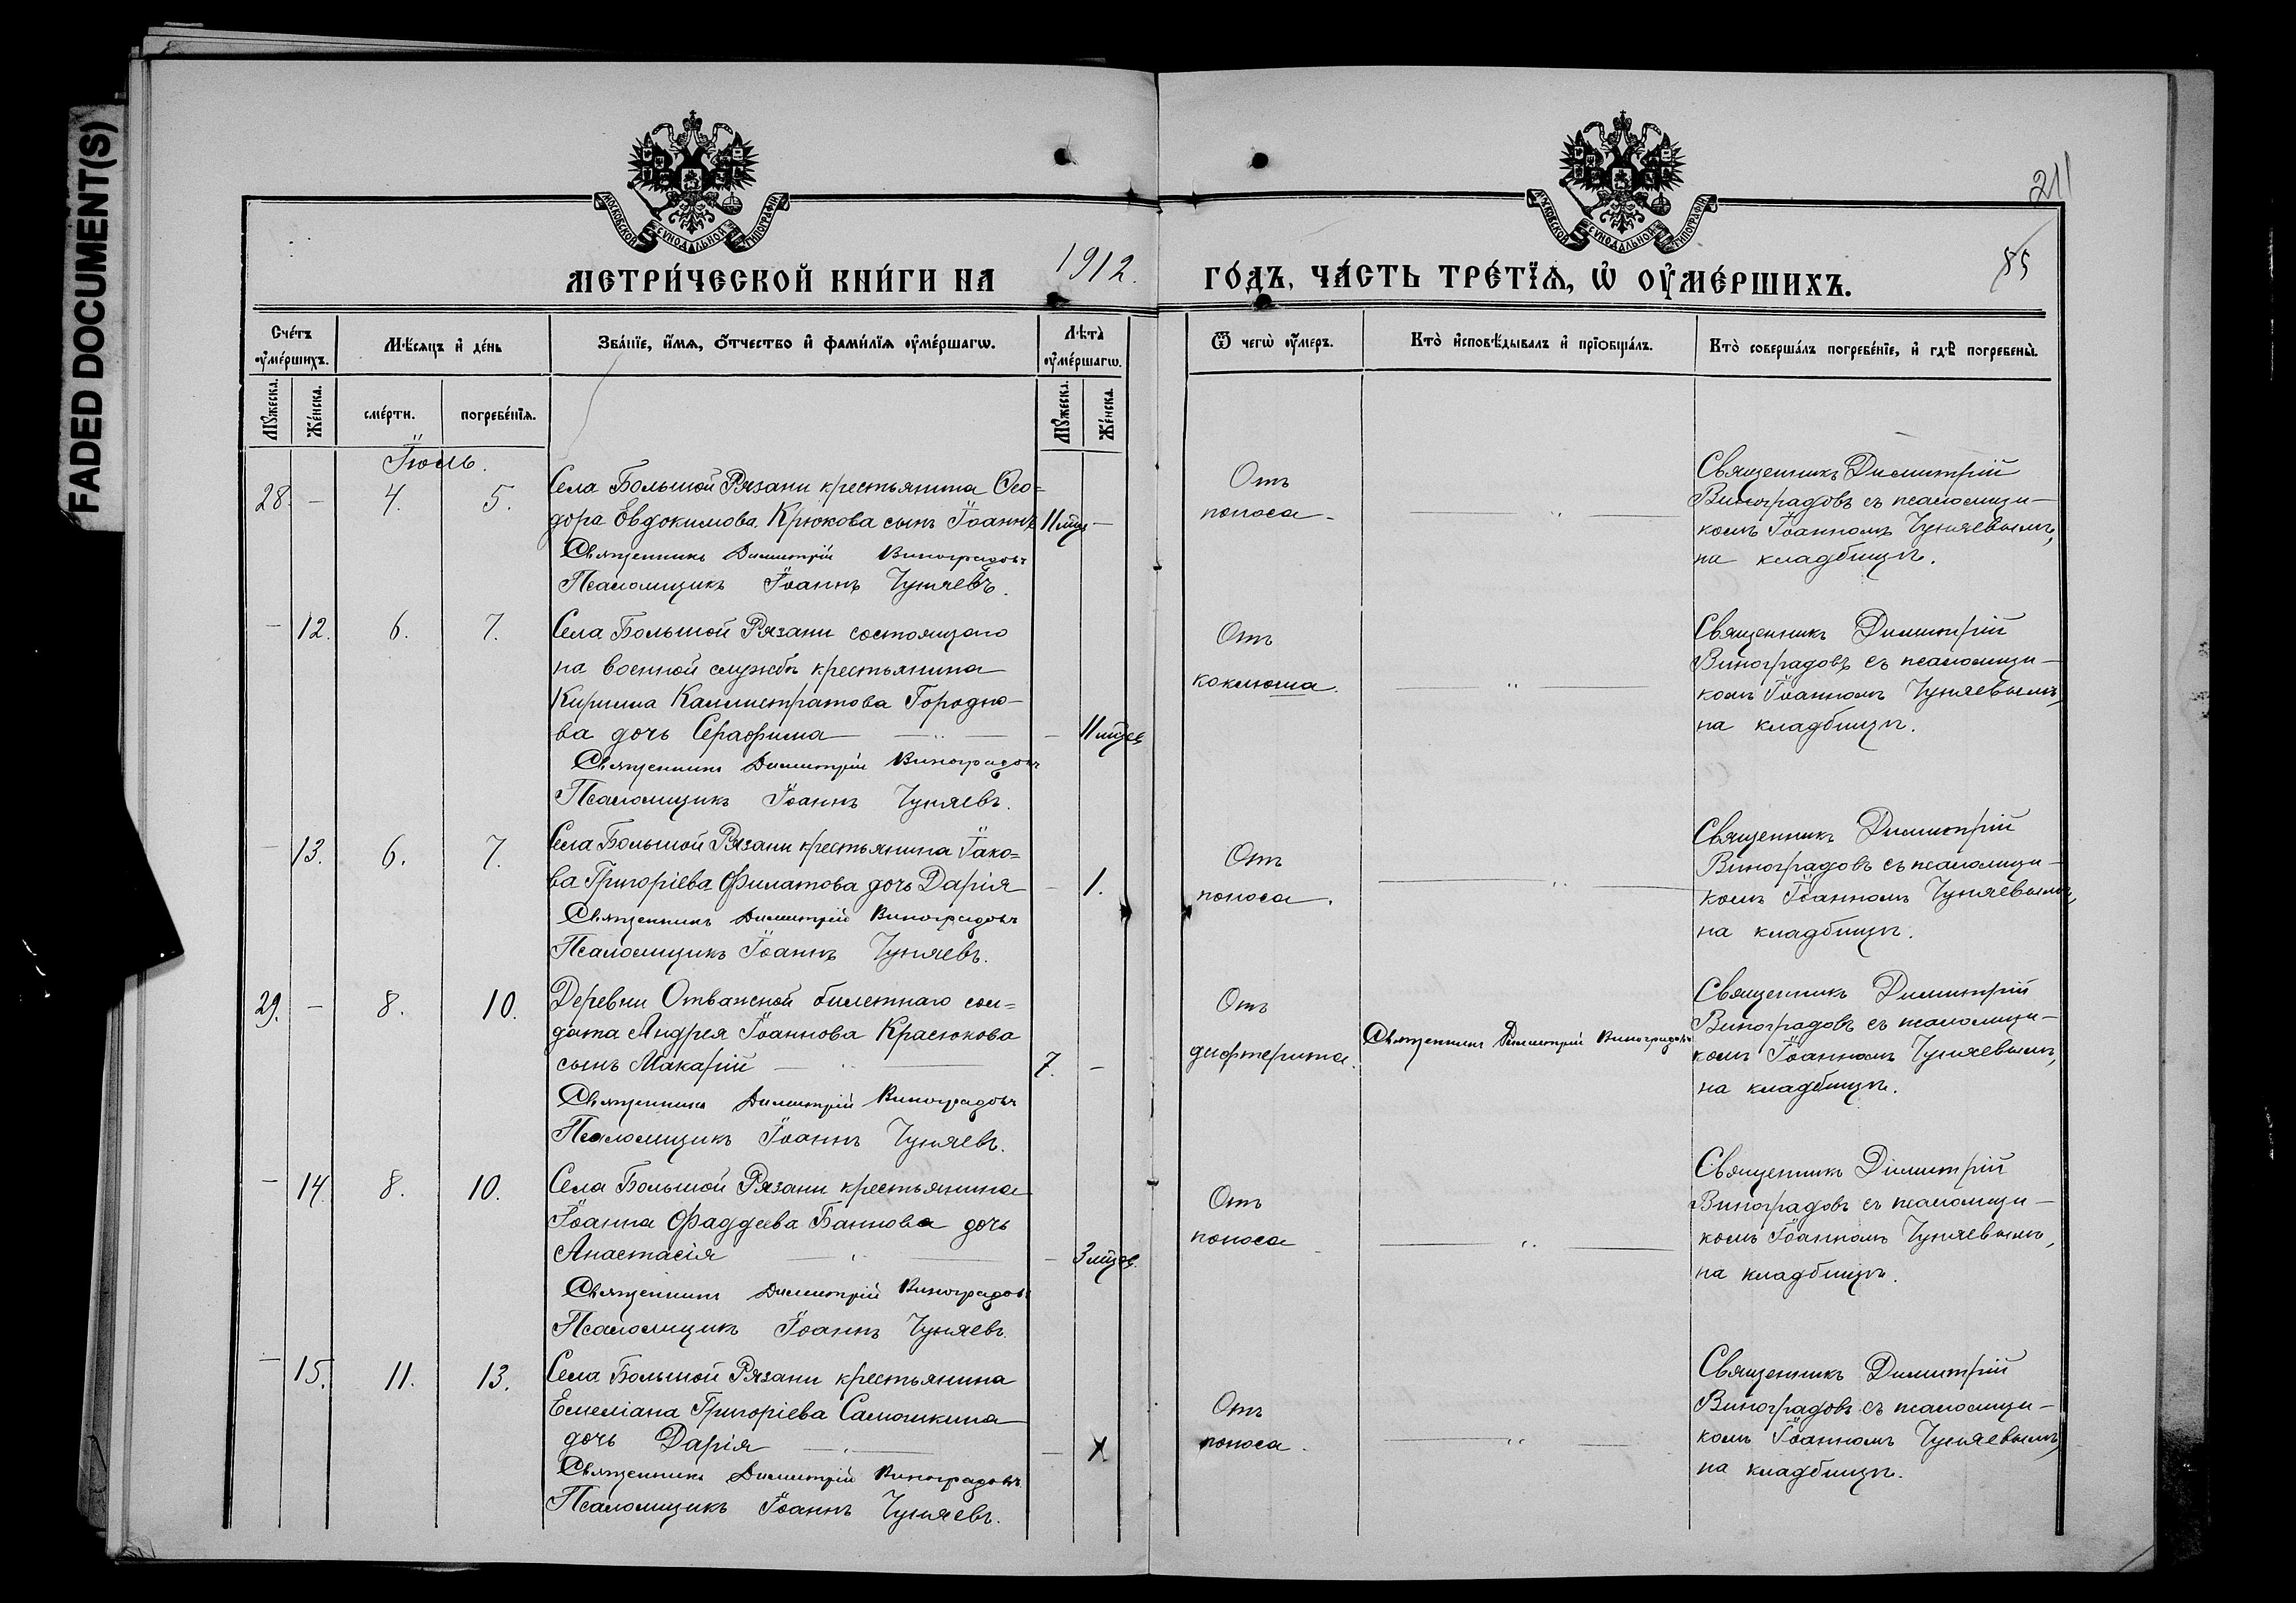 FADED DOCUMENT(S)
МОСКОВСКОЙ СѴНОДАЛЬНОЙ ТИПОГРАФІИ
МОСКОВСКОЙ СѴНОДАЛЬНОЙ ТИПОГРАФІИ
211
МЕТРИ́ЧЕСКОЙ КНИ́ГИ НА 1912. ГО́ДЪ, ЧА́СТЬ ТРЕ́ТІѦ, Ѡ҆ ОУ҆МЕ́РШИХЪ.
85
Сче́тъ оу҆ме́ршихъ.
Мѣ́сяцъ и҆ де́нь
Зва́ніе, и҆́мя, ѻ҆́тчество и҆ фами́лїя оу҆ме́ршагѡ.
Лѣта̀ оу҆ме́ршагѡ.
Ѿ чегѡ̀ оу҆́меръ.
Кто̀ и҆сповѣ́дывалъ и҆ прїѡбща́лъ.
Кто̀ соверша́лъ погребе́нїе, и҆ гдѣ̀ погребены̀.
Мꙋ́жеска.
Же́нска.
сме́рти.
погребе́нїѧ.
Мꙋ́жеска.
Же́нска.
Іюль.
28. – 4. 5.
Села Большой Рязани крестьянина Ѳео=
дора Евдокимова Крюкова сынъ Іоаннъ 11 мцв –
Священникъ Димитрій Виноградовъ
Псаломщикъ Іоаннъ Чуняевъ.
Отъ
поноса –
Священникъ Димитрій
Виноградовъ съ псаломщи–
комъ Іоанномъ Чуняевымъ,
на кладбищѣ.
– 12. 6. 7.
Села Большой Рязани состоящаго
на военной службѣ крестьянина
Кирилла Каллистратова Городно–
ва дочь Серафима – 11 мцев
Священникъ Димитрій Виноградовъ
Псаломщикъ Іоаннъ Чуняевъ.
Отъ
коклюша.
Священникъ Димитрій
Виноградовъ съ псаломщи–
комъ Іоанномъ Чуняевымъ,
на кладбищѣ.
– 13. 6. 7.
Села Большой Рязани крестьянина Іако=
ва Григоріева Филатова дочь Дарія – 1.
Священникъ Димитрій Виноградовъ
Псаломщикъ Іоаннъ Чуняевъ.
Отъ
поноса.
Священникъ Димитрій
Виноградовъ съ псаломщи–
комъ Іоанномъ Чуняевымъ,
на кладбищѣ.
29. – 8. 10.
Деревни Отважной билетнаго сол=
дата Андрея Іоаннова Красюкова
сынъ Макарій 7. –
Священникъ Димитрій Виноградовъ
Псаломщикъ Іоаннъ Чуняевъ.
Отъ
дифтерита.
Священникъ Димитрій Виноградовъ
Священникъ Димитрій
Виноградовъ съ псаломщи–
комъ Іоанномъ Чуняевымъ,
на кладбищѣ.
– 14. 8. 10.
Села Большой Рязани крестьянина
Іоанна Фаддеева Баннова дочь
Анастасія – 3 мцев.
Священникъ Димитрій Виноградовъ
Псаломщикъ Іоаннъ Чуняевъ.
Отъ
поноса –
Священникъ Димитрій
Виноградовъ съ псаломщи–
комъ Іоанномъ Чуняевымъ,
на кладбищѣ.
– 15. 11. 13.
Села Большой Рязани крестьянина
Емеліана Григоріева Самошкина
дочь Дарія –
Священникъ Димитрій Виноградовъ
Псаломщикъ Іоаннъ Чуняевъ.
Отъ
поноса.
Священникъ Димитрій
Виноградовъ съ псаломщи–
комъ Іоанномъ Чуняевымъ,
на кладбищѣ.